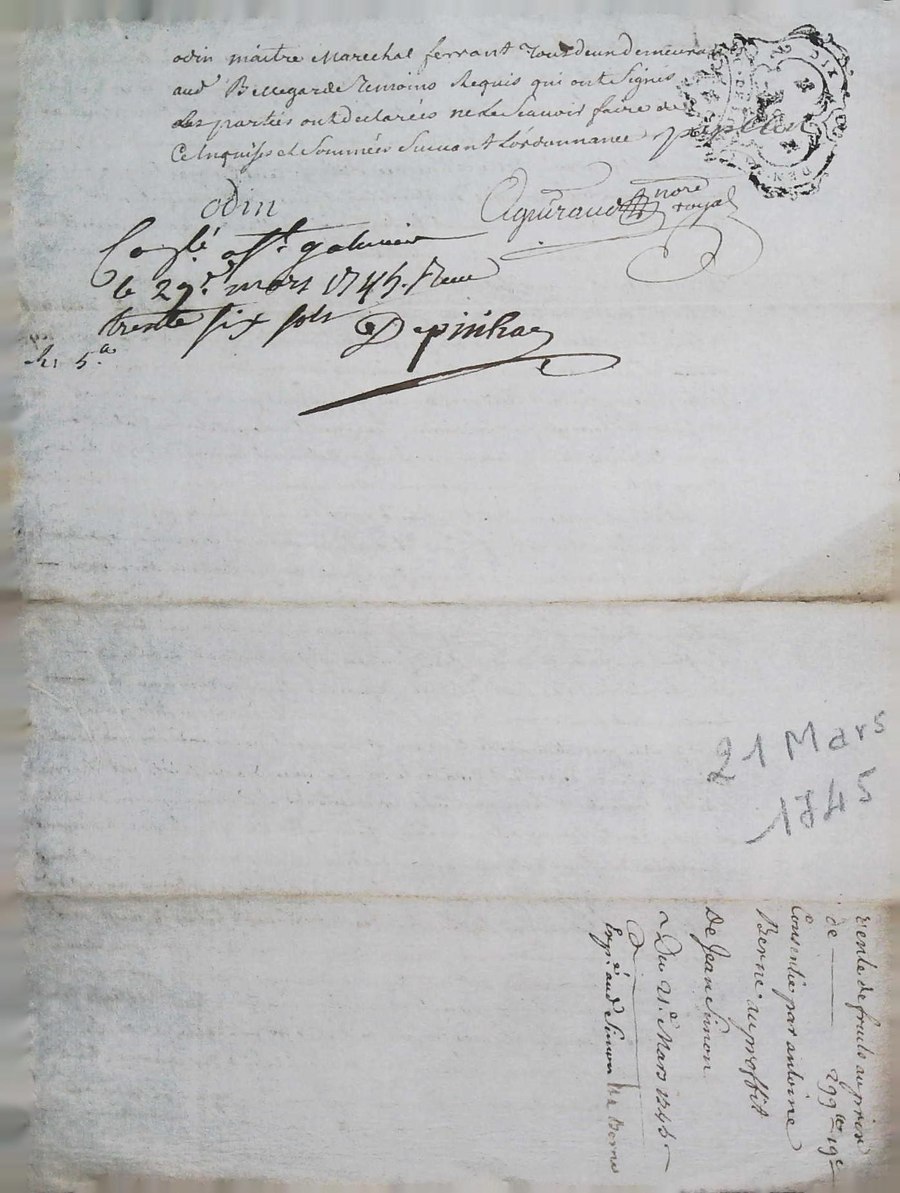 odin maitre Marechal ferrant tous deux demeurants
aud Bellegarde temoins Requis qui ont Signés
Les parties ont declarées ne le Scavoir faire de
Ce Enquises et Sommées Suivant L'ordonnance
odin
Aguiraud nore
royal
Conlé
le 29e. mars 1745. Receu
trente six sols
Depinhac
R. 5.
21 Mars
1745
Vente de fruits au prix
de 299ll 19s
Consentie par antoine
Berne au proffit
De Jean Simon
Du 21e. Mars 1745
Exp.é aud Simon